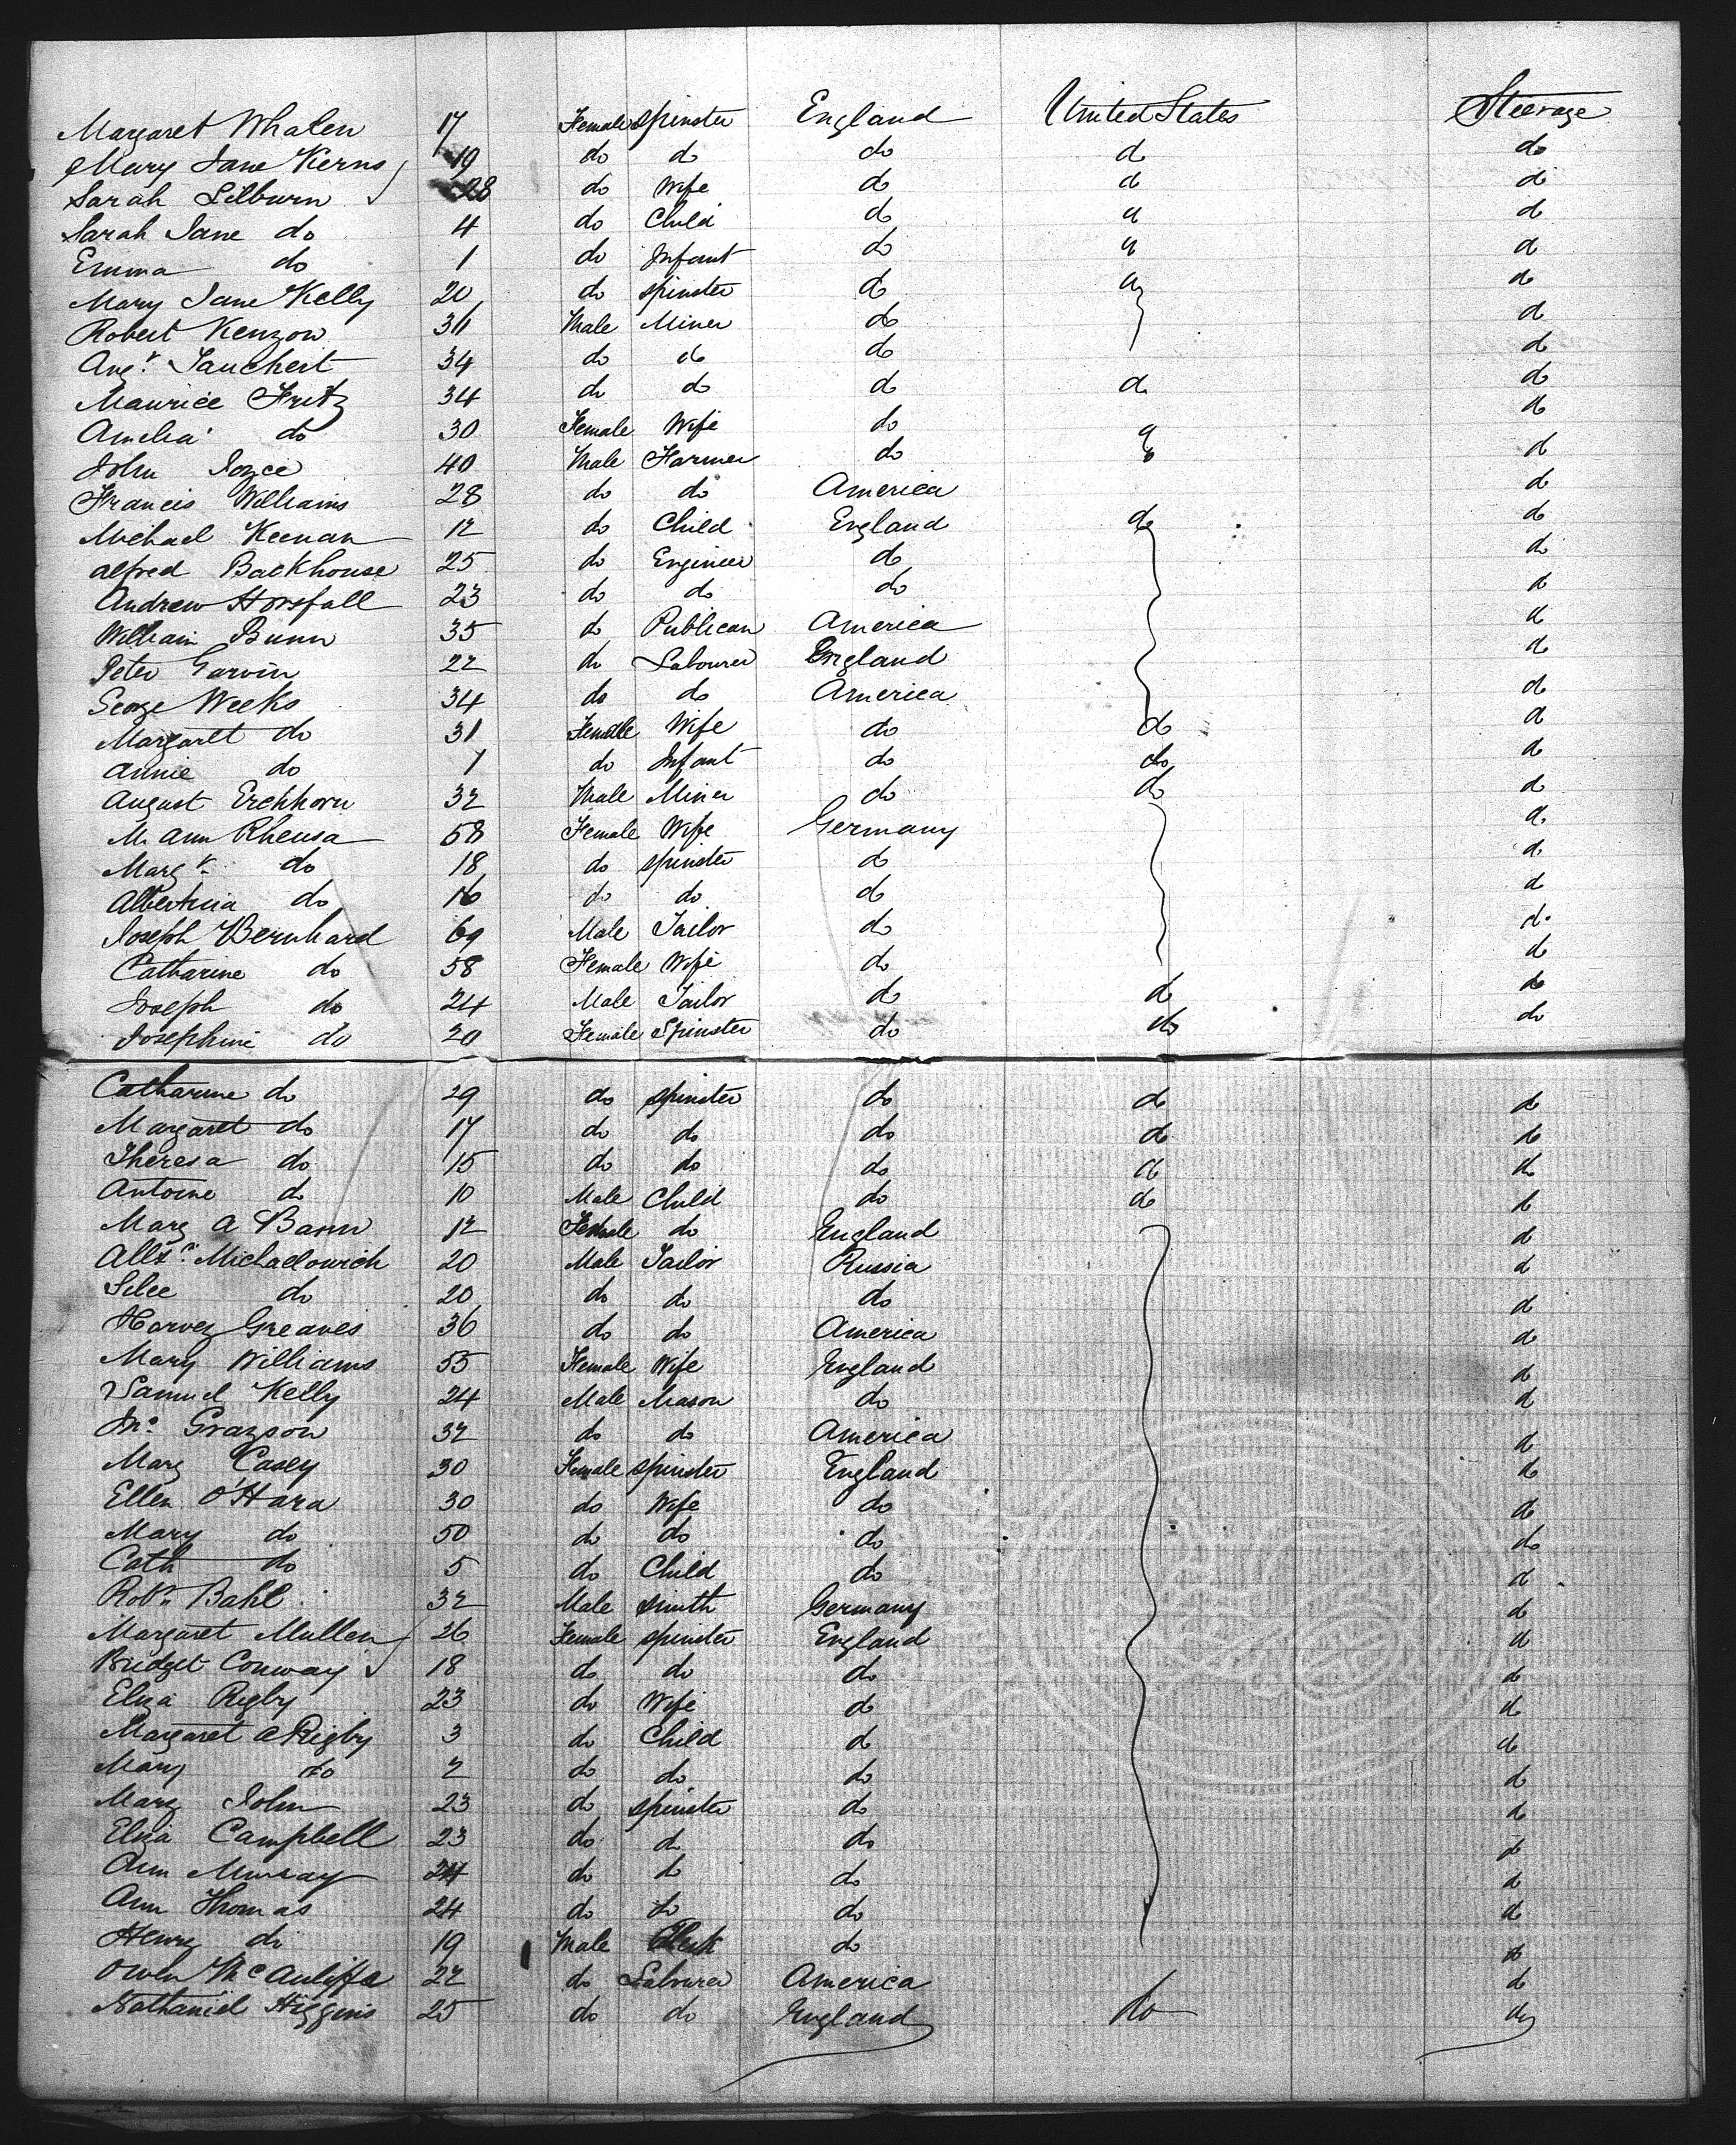 Margaret Whalen 17 Female Spinster England United States Steerage
Mary Jane Kerns 19 do do do do do
Sarah Lilburn 28 do Wife do do do
Sarah Jane do 4 do Child do do do
Emma do 1 do Infant do do do
Mary Jane Kelly 20 do spinster do do do
Robert Kenzon 36 Male Miner do do
Aug.t Tauchert 34 do do do do
Maurice Fritz 34 do do do do do
Amelia do 30 Female Wife do do do
John Joyce 40 Male Farmer do do do
Francis Williams 28 do do America do
Michael Keenan 12 do Child England do do
Alfred Backhouse 25 do Engineer do do
Andrew Horsfall 23 do do do do
William Bunn 35 do Publican America do
Peter Garvin 22 do Labourer England do
George Weeks 34 do do America do
Margaret do 31 Female Wife do do do
Annie do 1 do Infant do do do
August Erchhorn 32 Male Miner do do do
M. Ann Rheusa 58 Female Wife Germany do
Marg.t do 18 do spinster do do
Albertina do 16 do do do do
Joseph Bernhard 69 Male Tailor do do
Catharine do 58 Female Wife do do
Joseph do 24 Male Tailor do do do
Josephine do 20 Female Spinster do do do
Catharine do 29 do spinster do do do
Margaret do 17 do do do do do
Theresa do 15 do do do do do
Antoine do 10 Male Child do do do
Mary A Bann 12 Female do England do
Michaelowich 20 Male Tailor Russia do
Silee do 20 do do do do
Harvey Greaves 36 do do America do
Mary Williams 55 Female Wife England do
Samuel Kelly 24 Male Mason do do
Jno. Grayson 32 do do America do
Mary Casey 30 Female spinster England do
Ellen O'Hara 30 do Wife do do
Mary do 50 do do do do
Cath do 5 do Child do do
Robt. Bahl 32 Male smith Germany do
Margaret Mullen 26 Female spinster England do
Bridget Conway 18 do do do do
Eliza Rigby 23 do Wife do do
Margaret A Rigby 3 do Child do do
Mary do 2 do do do do
Mary John 23 do spinster do do
Eliza Campbell 23 do do do do
Ann Murray 24 do do do do
Ann Thomas 24 do do do do
Henry do 19 Male Clerk do do
Owen McAuliffe 22 do Labourer America do
Nathaniel Higgins 25 do do England do do